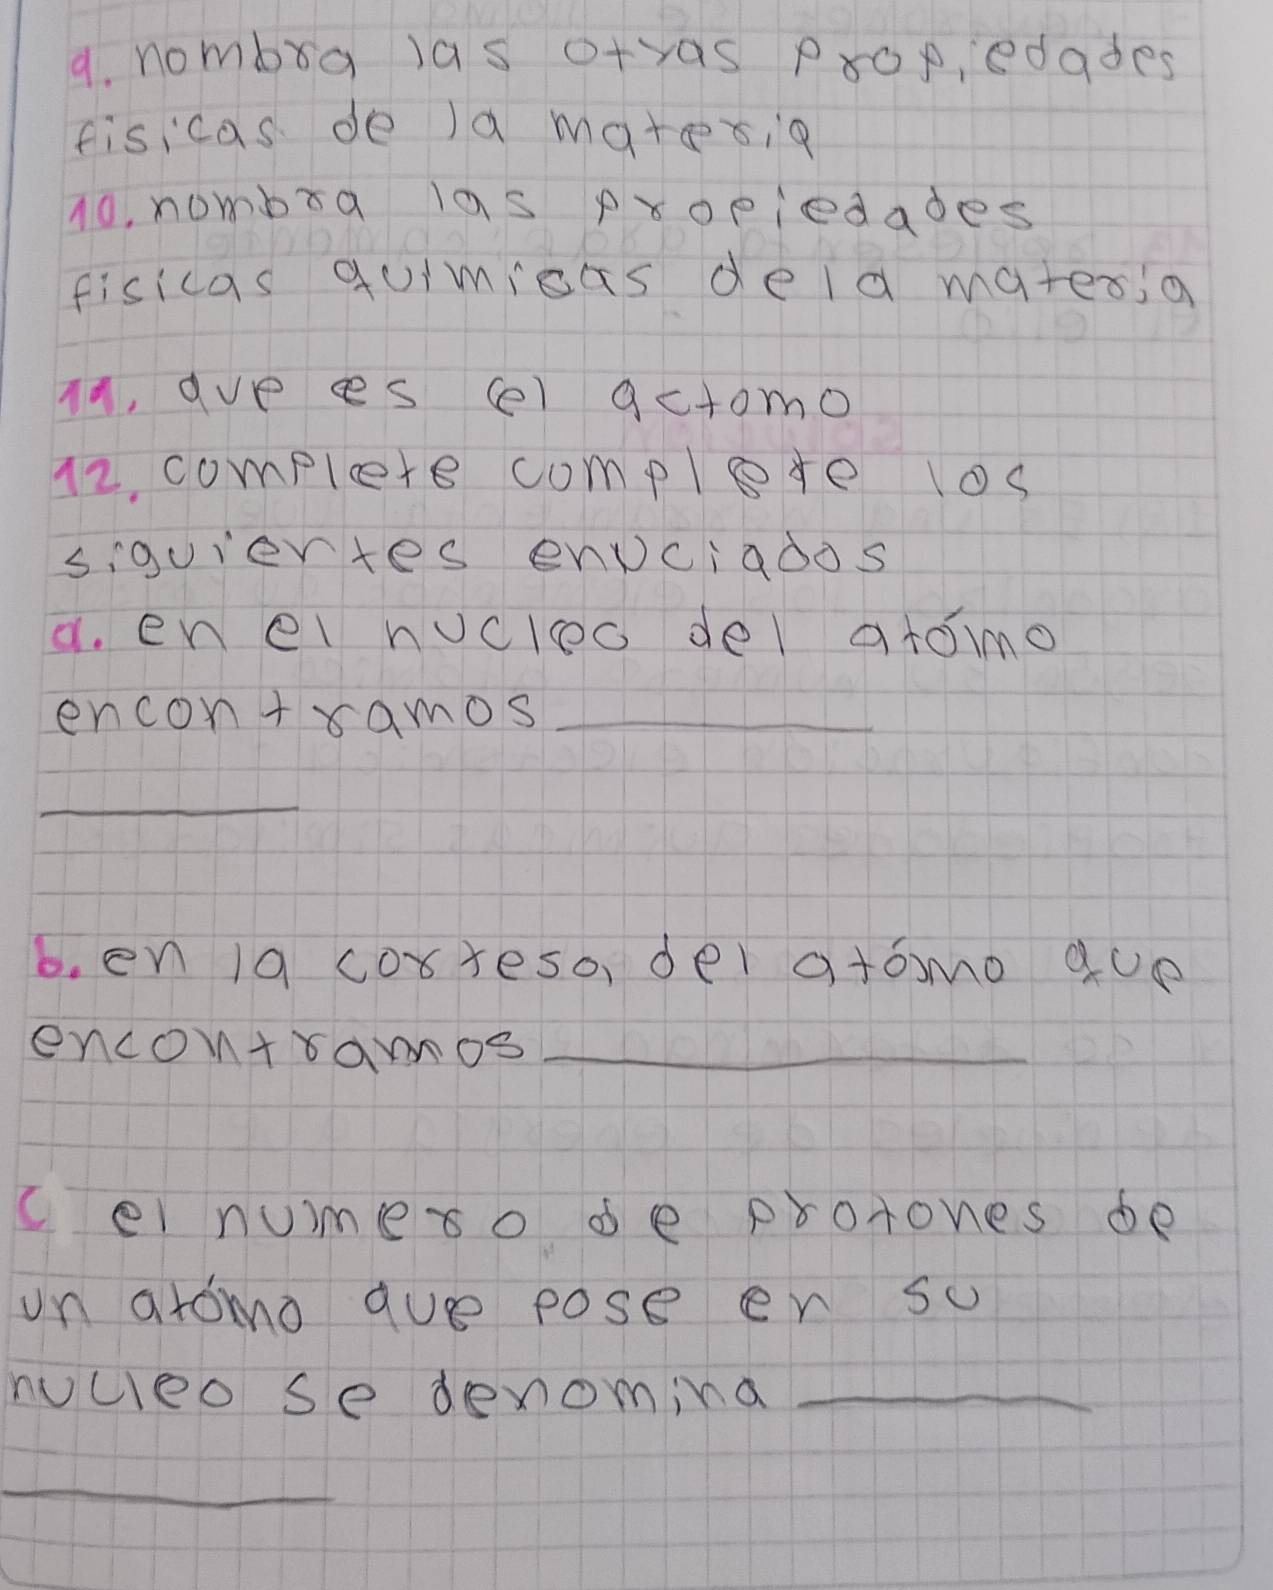 9. nombra las otras propiedades
fisicas de la materia
10. nombra las propiedades
fisicas quimicas dela materia
11. que es el actomo
12. complete complete los
siguientes enuciados
a. en el nucleo del atómo
encontramos
b. en la cortesa, del atómo que
encontramos
c el numero de protones de
un atómo que pose en su
nucleo se denomina